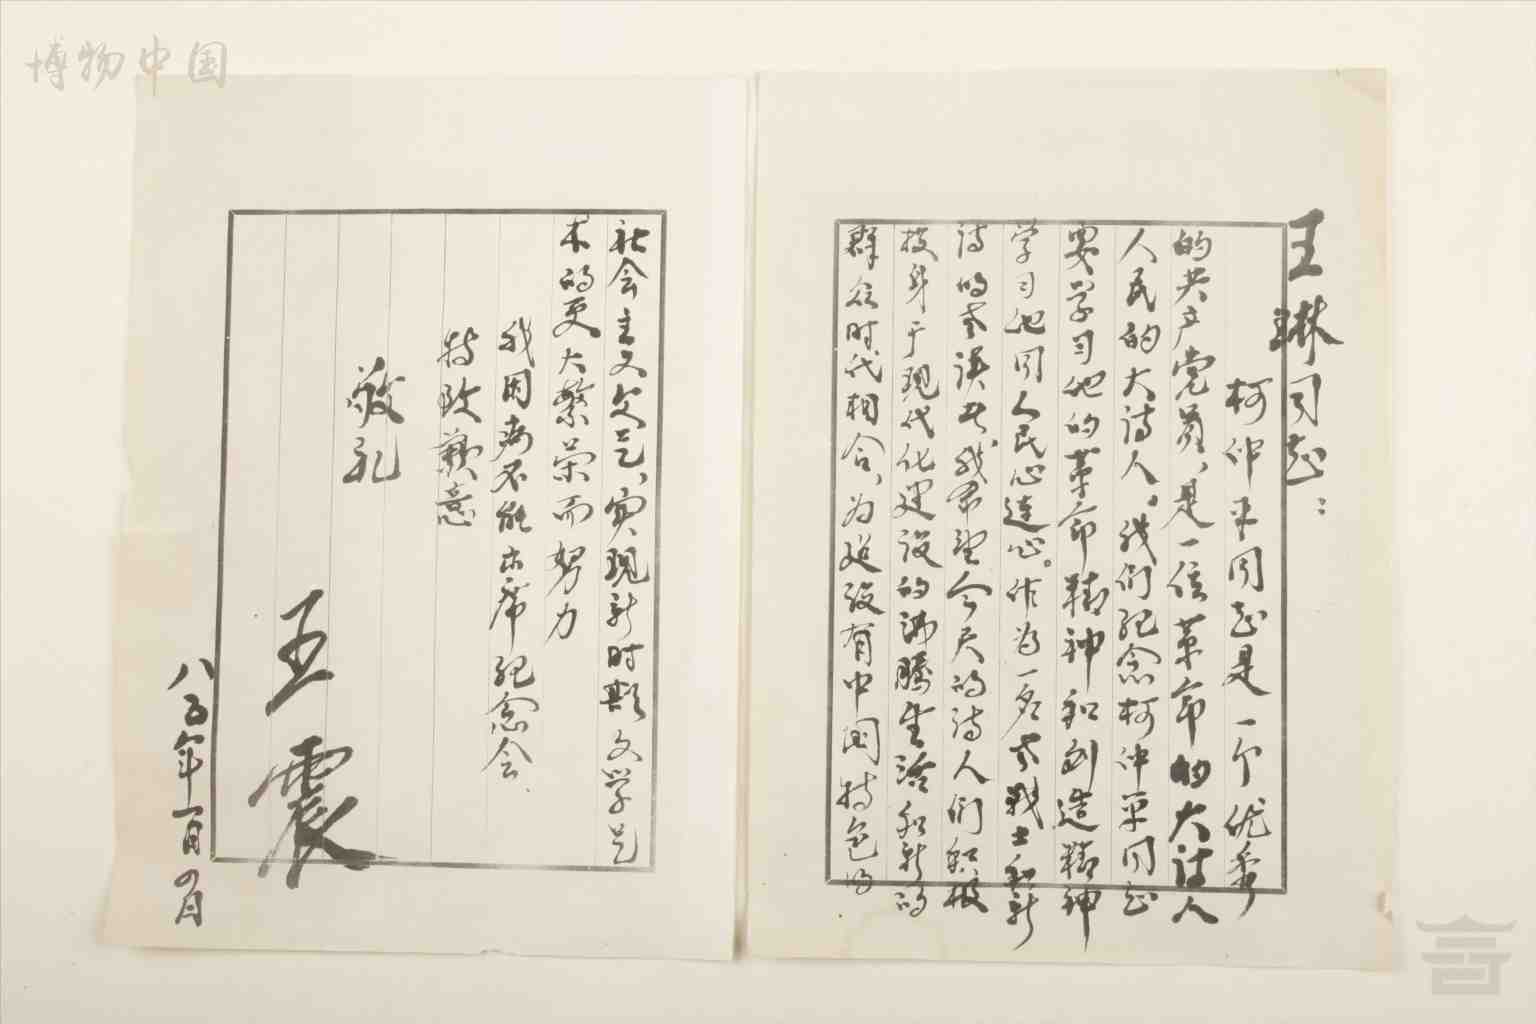 博物中国
王琳同志：
柯仲平同志是一个优秀
的共产党员，是一位革命的大诗人
人民的大诗人。我们纪念柯仲平同志
要学习他的革命精神和创造精神
学习他同人民心连心。作为一名战士和新
诗的我希望今天的诗人们积极
投身于现代化建设的沸腾生活和新的
群众时代相合、为建设有中国特色的
社会主义文艺、实现新时期文学艺
术的更大繁荣而努力
我因病不能出席纪念会、
特致歉意
敬礼
王震
八五年一月四日